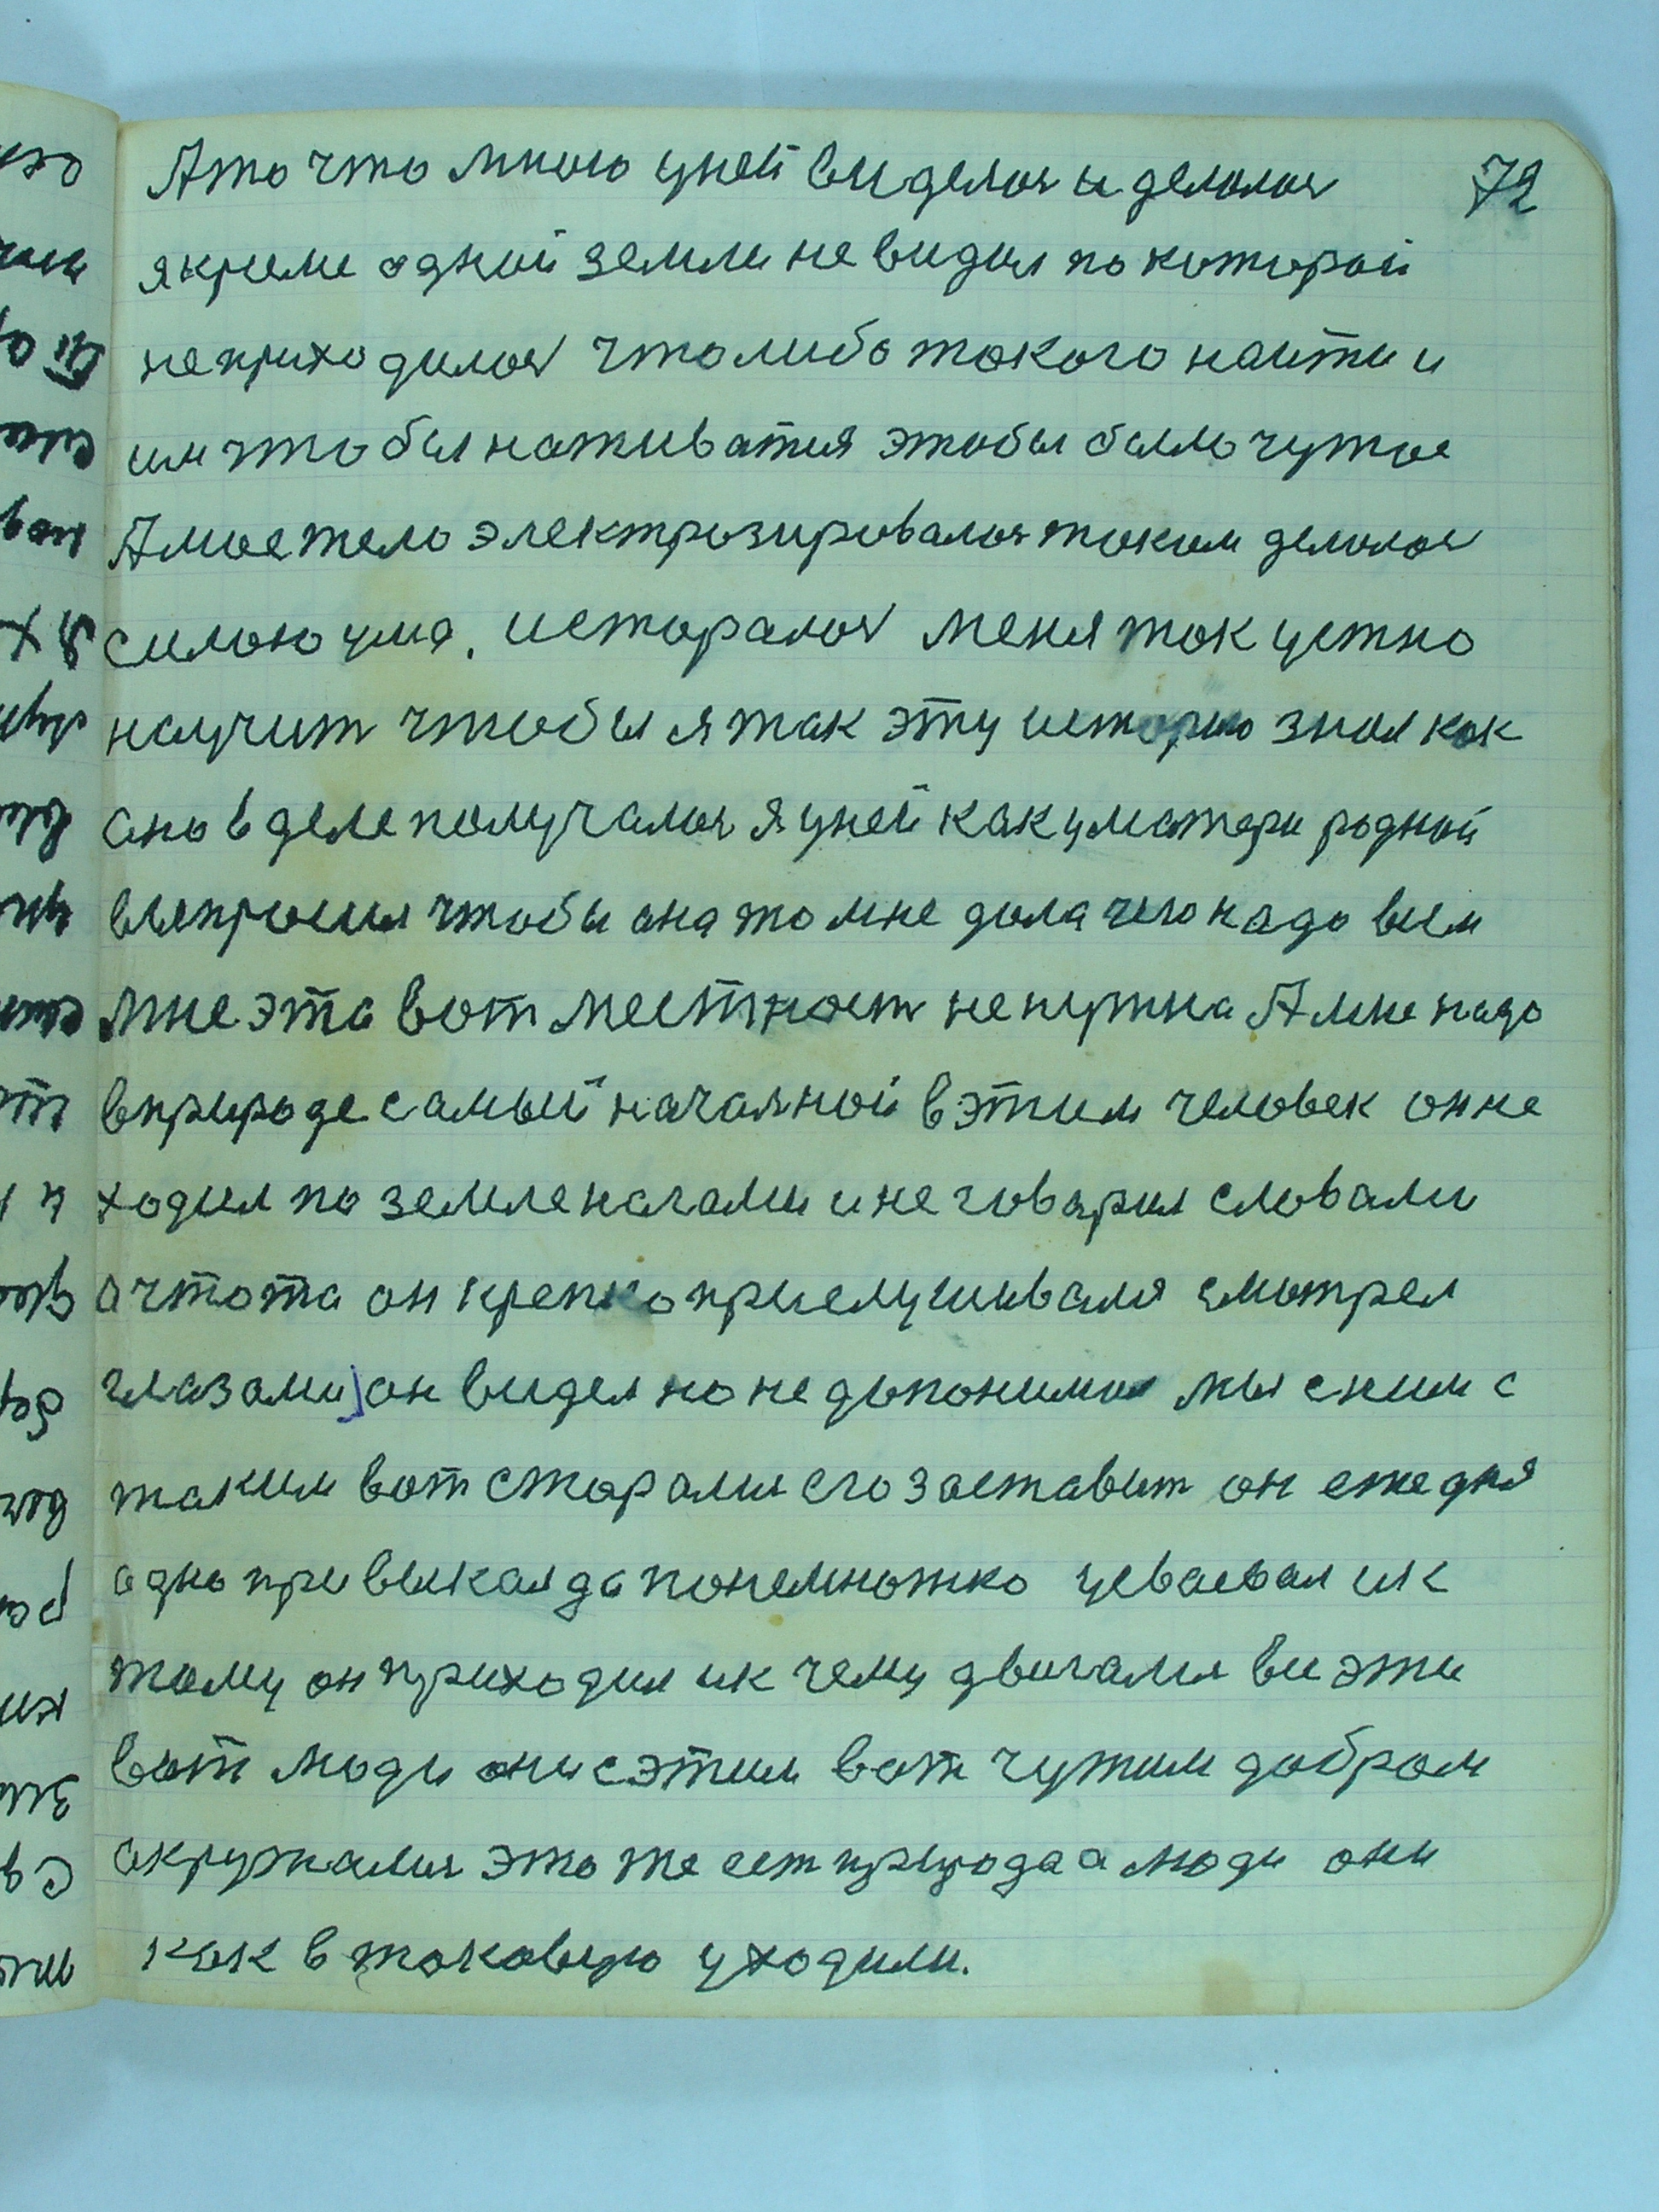 72
Ато что много уней виделоя и делолоя
якроме одной земли невидил покоторой
неприходилоя чтолибо токого наити и
им чтобы наживатия этобы было чужое
Амоетело электрозировалоя током делолоя
силою ума. исторалоя меня ток устно
научит чтобы я так эту историю знал как
оно в деле получалоя Яуней какуматери родной
выпросил чтобы она то мне дала чего надо всем
мне эта вот местност ненужна А мне надо
вприроде самый начальной в этим человек он не
ходил по земле ногами и не говорил словами
а чтото он крепко прислушивалия смотрел
глазами он видел но недопонимал мы сним с
таким вот старалия его заставит он ежедня
одно привыкал да понемножко усваевал ик
тому он приходил ик чему двигалия все эти
вот люди они с этим вот чужим добром
окружалия это же ест природа а люди они
как в таковую уходили.